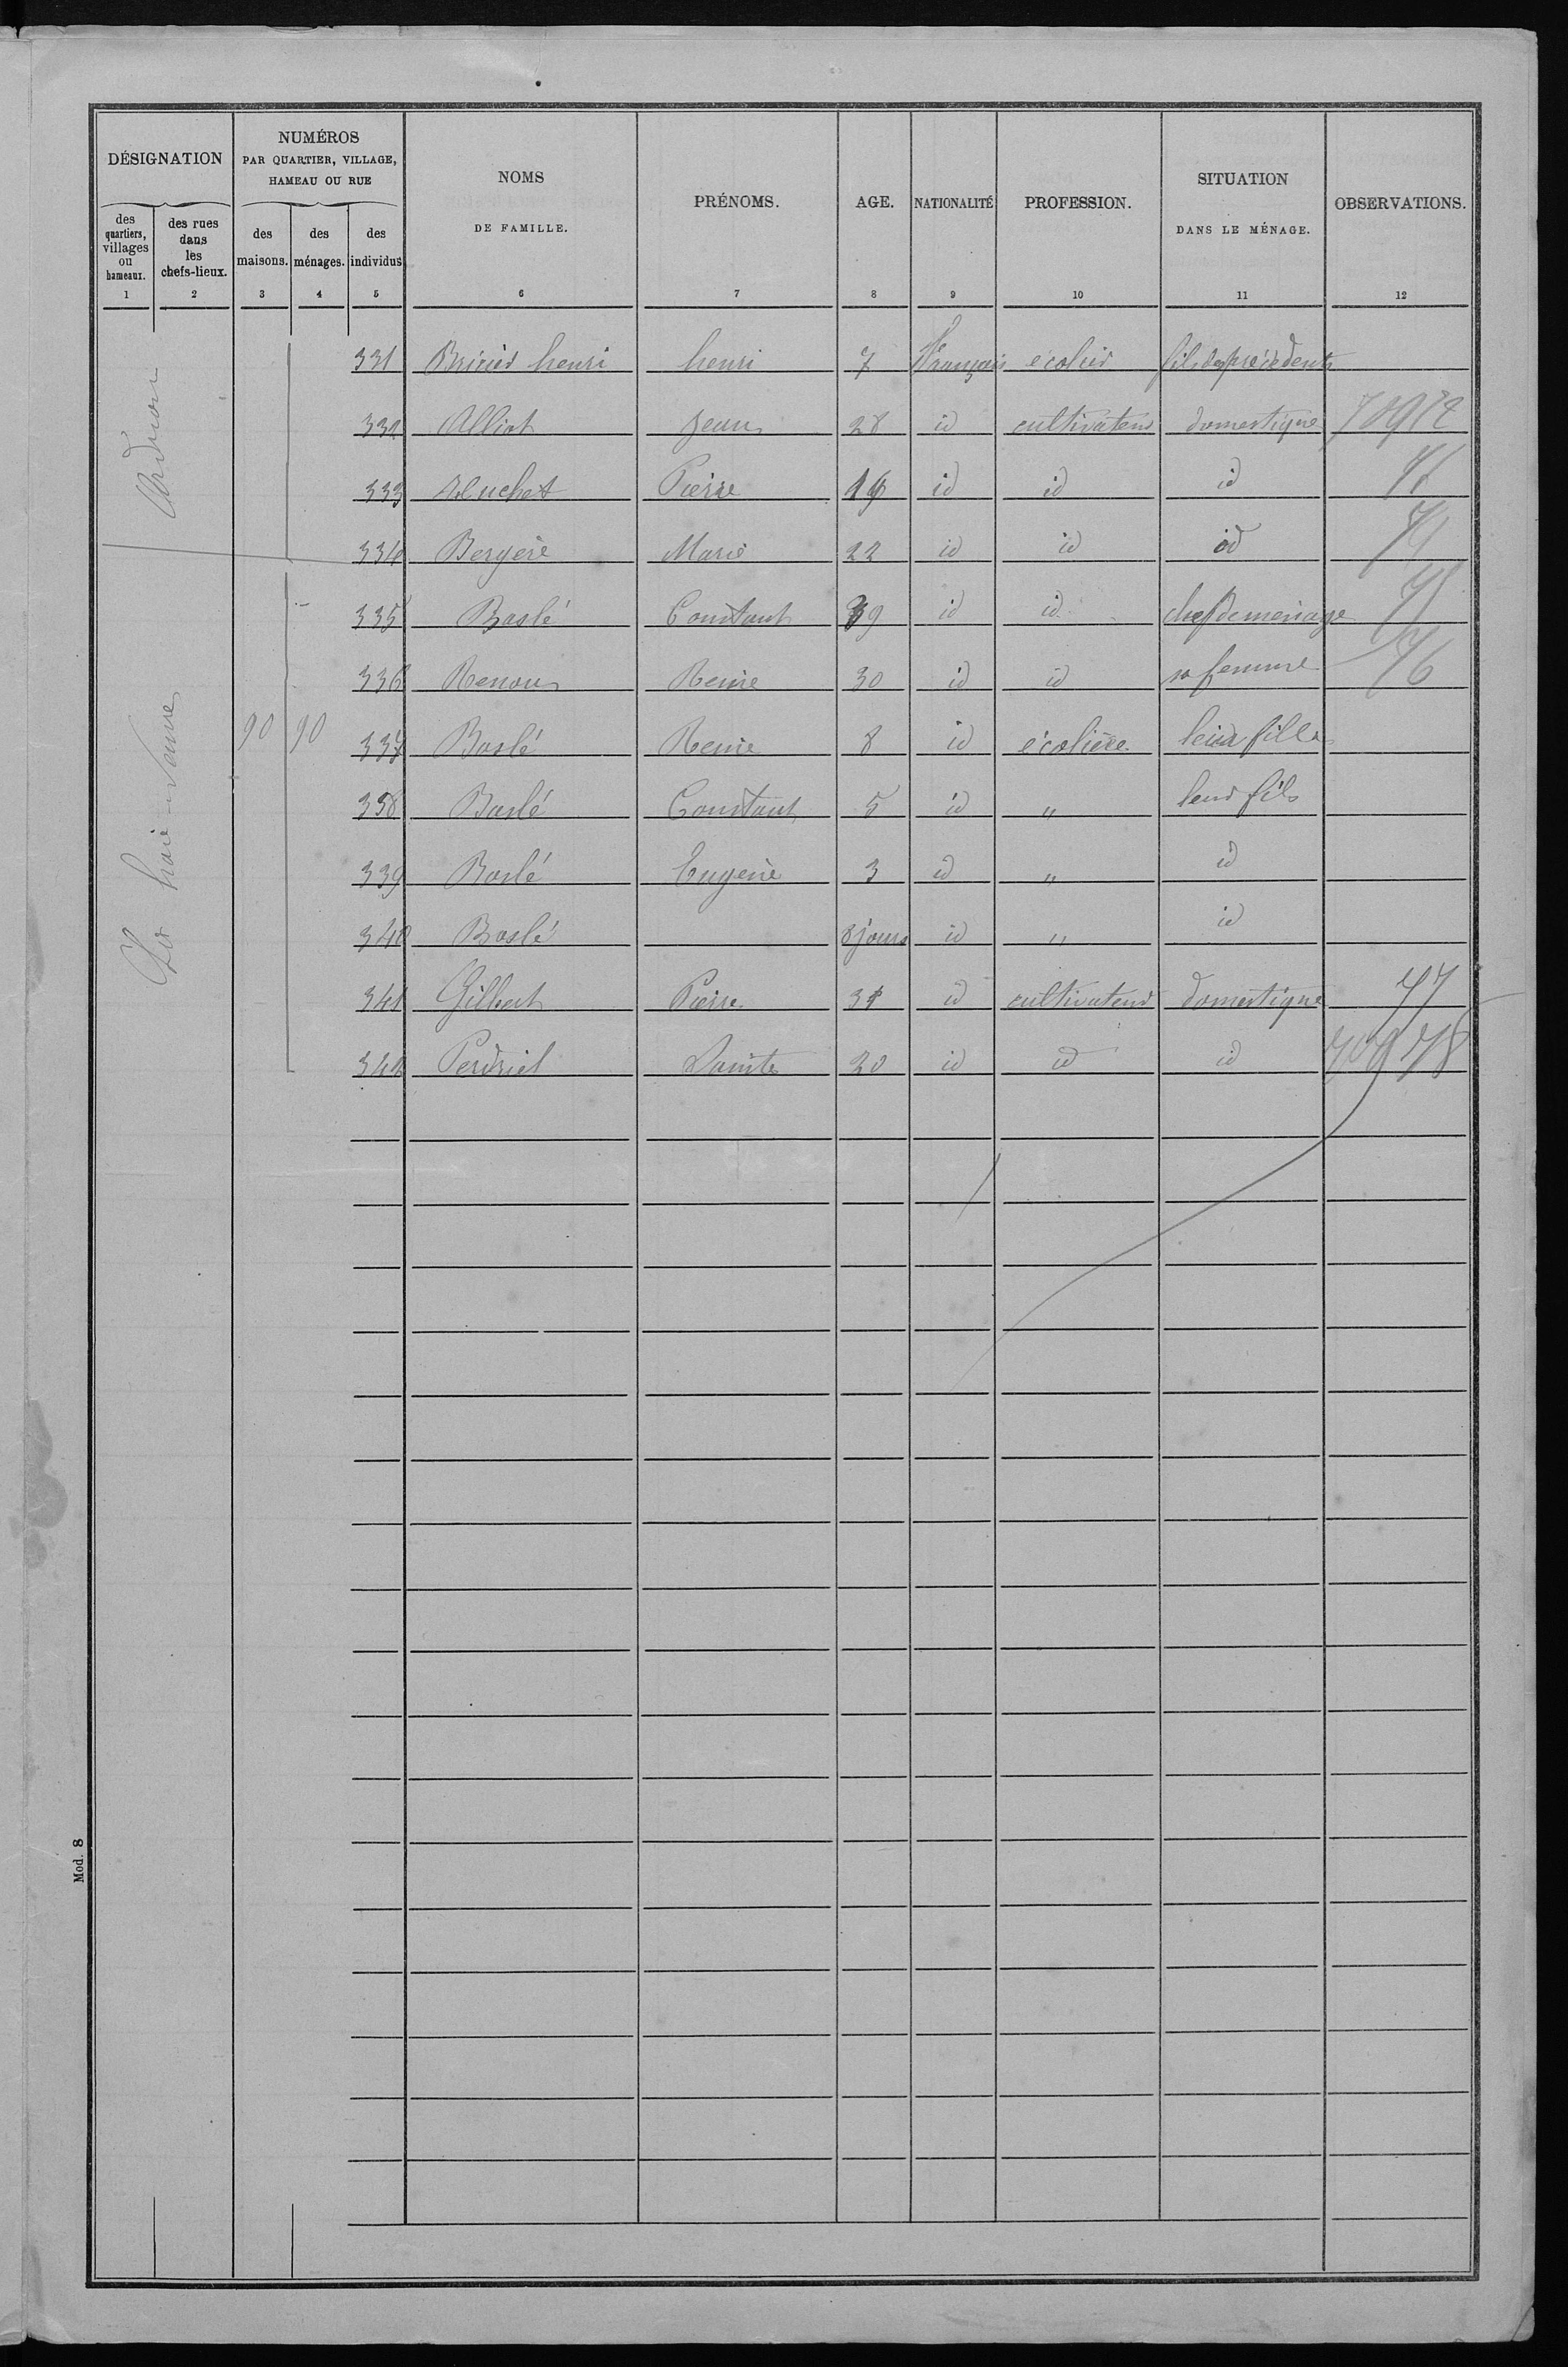 DÉSIGNATION
NUMÉROS
PAR QUARTIER, VILLAGE,
HAMEAU OU RUE
NOMS
DE FAMILLE.
PRÉNOMS.
AGE.
NATIONALITÉ
PROFESSION.
SITUATION
DANS LE MÉNAGE.
OBSERVATIONS.
des quartiers, villages ou hameaux.
des rues dans les chefs-lieux.
des maisons.
des ménages.
des individus
1 2 3 4 5 6 7 8 9 10 11 12
331 henri henri 7 Français ecolier fils des précédents
332 Alliot Jean 28 id cultivateur domestique
333 Pierre 19 id id id
334 Bergère Marie 22 id id id
335 Baslé Constant 39 id id chef de menage
336 Renou Renée 30 id id sa femme 76
90 90
337 Baslé Renée 8 id écolière leur fille
338 Baslé Constant 5 id " leur fils
339 Baslé Eugène 3 id " id
340 Baslé 8 jours id " id
341 Gilbert Pierre 31 id cultivateur domestique 77
342 Perdriel 20 id id id
Mod. 8